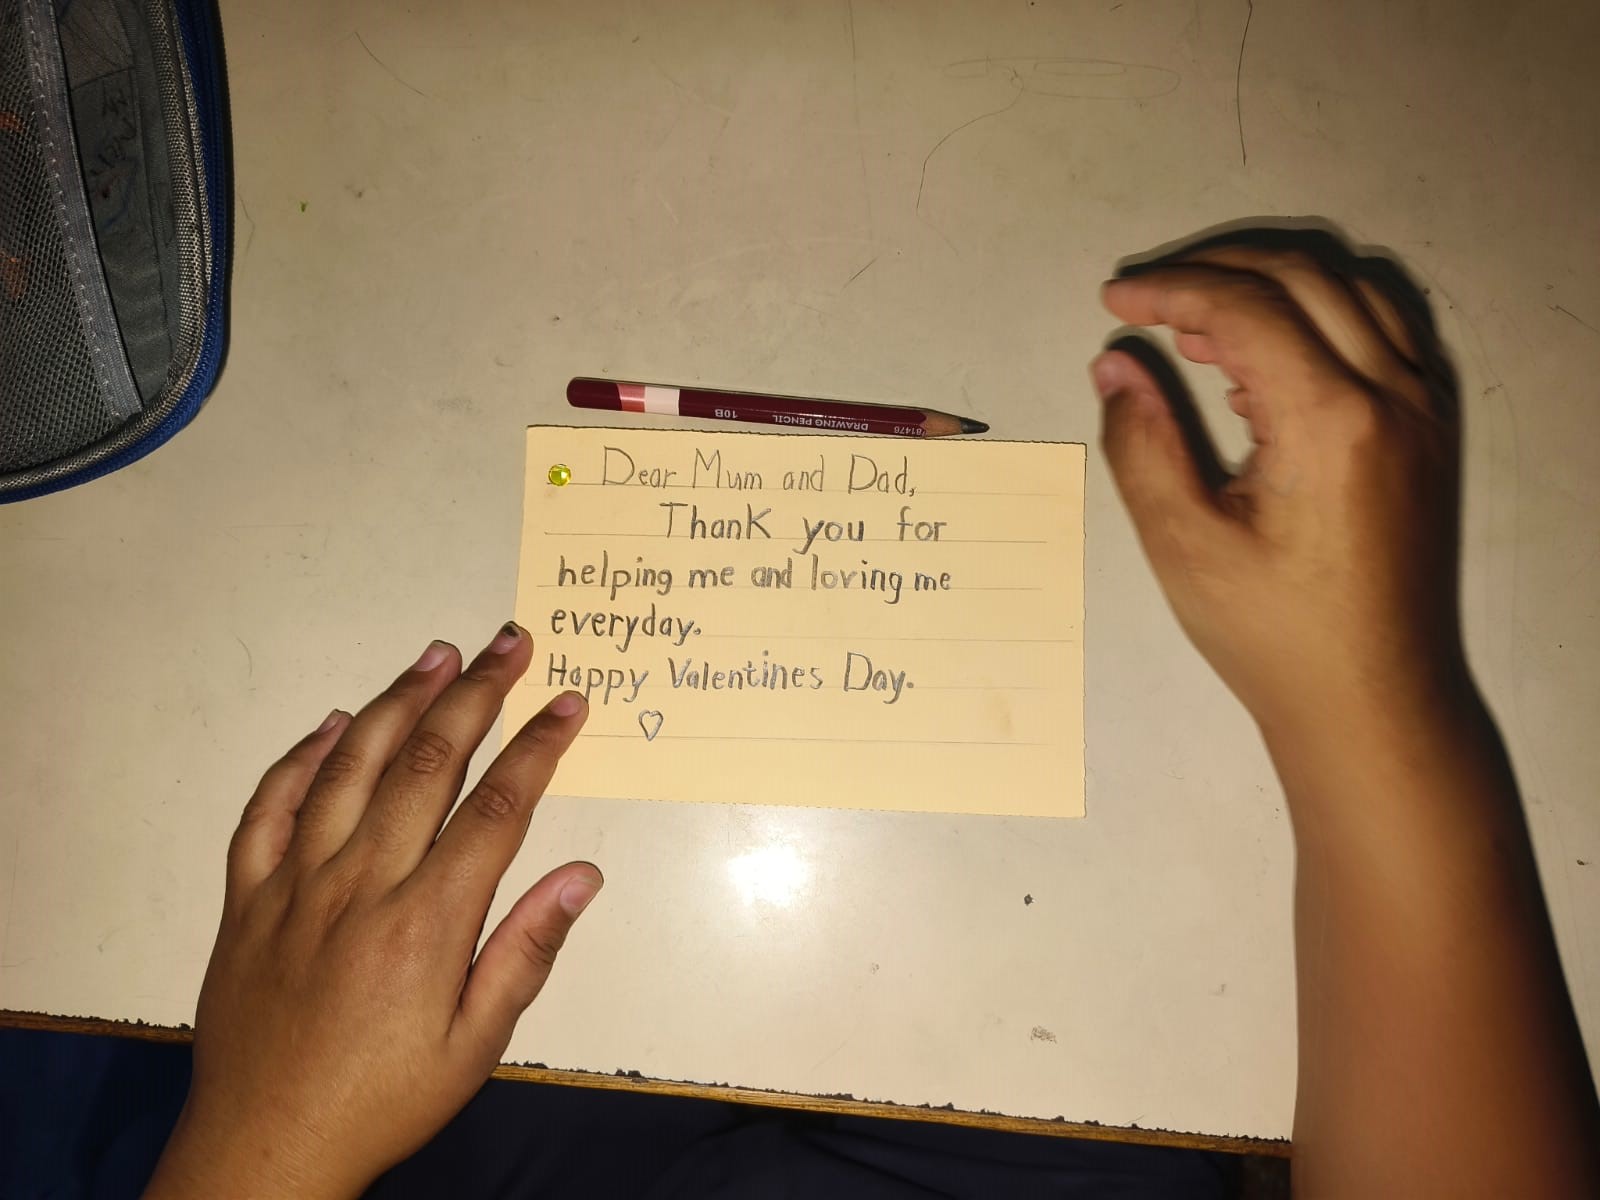 Dear Mum and Dad,
Thank you for
helping me and loving me
everyday.
Happy Valentines Day.
10B
DRAWING PENCIL